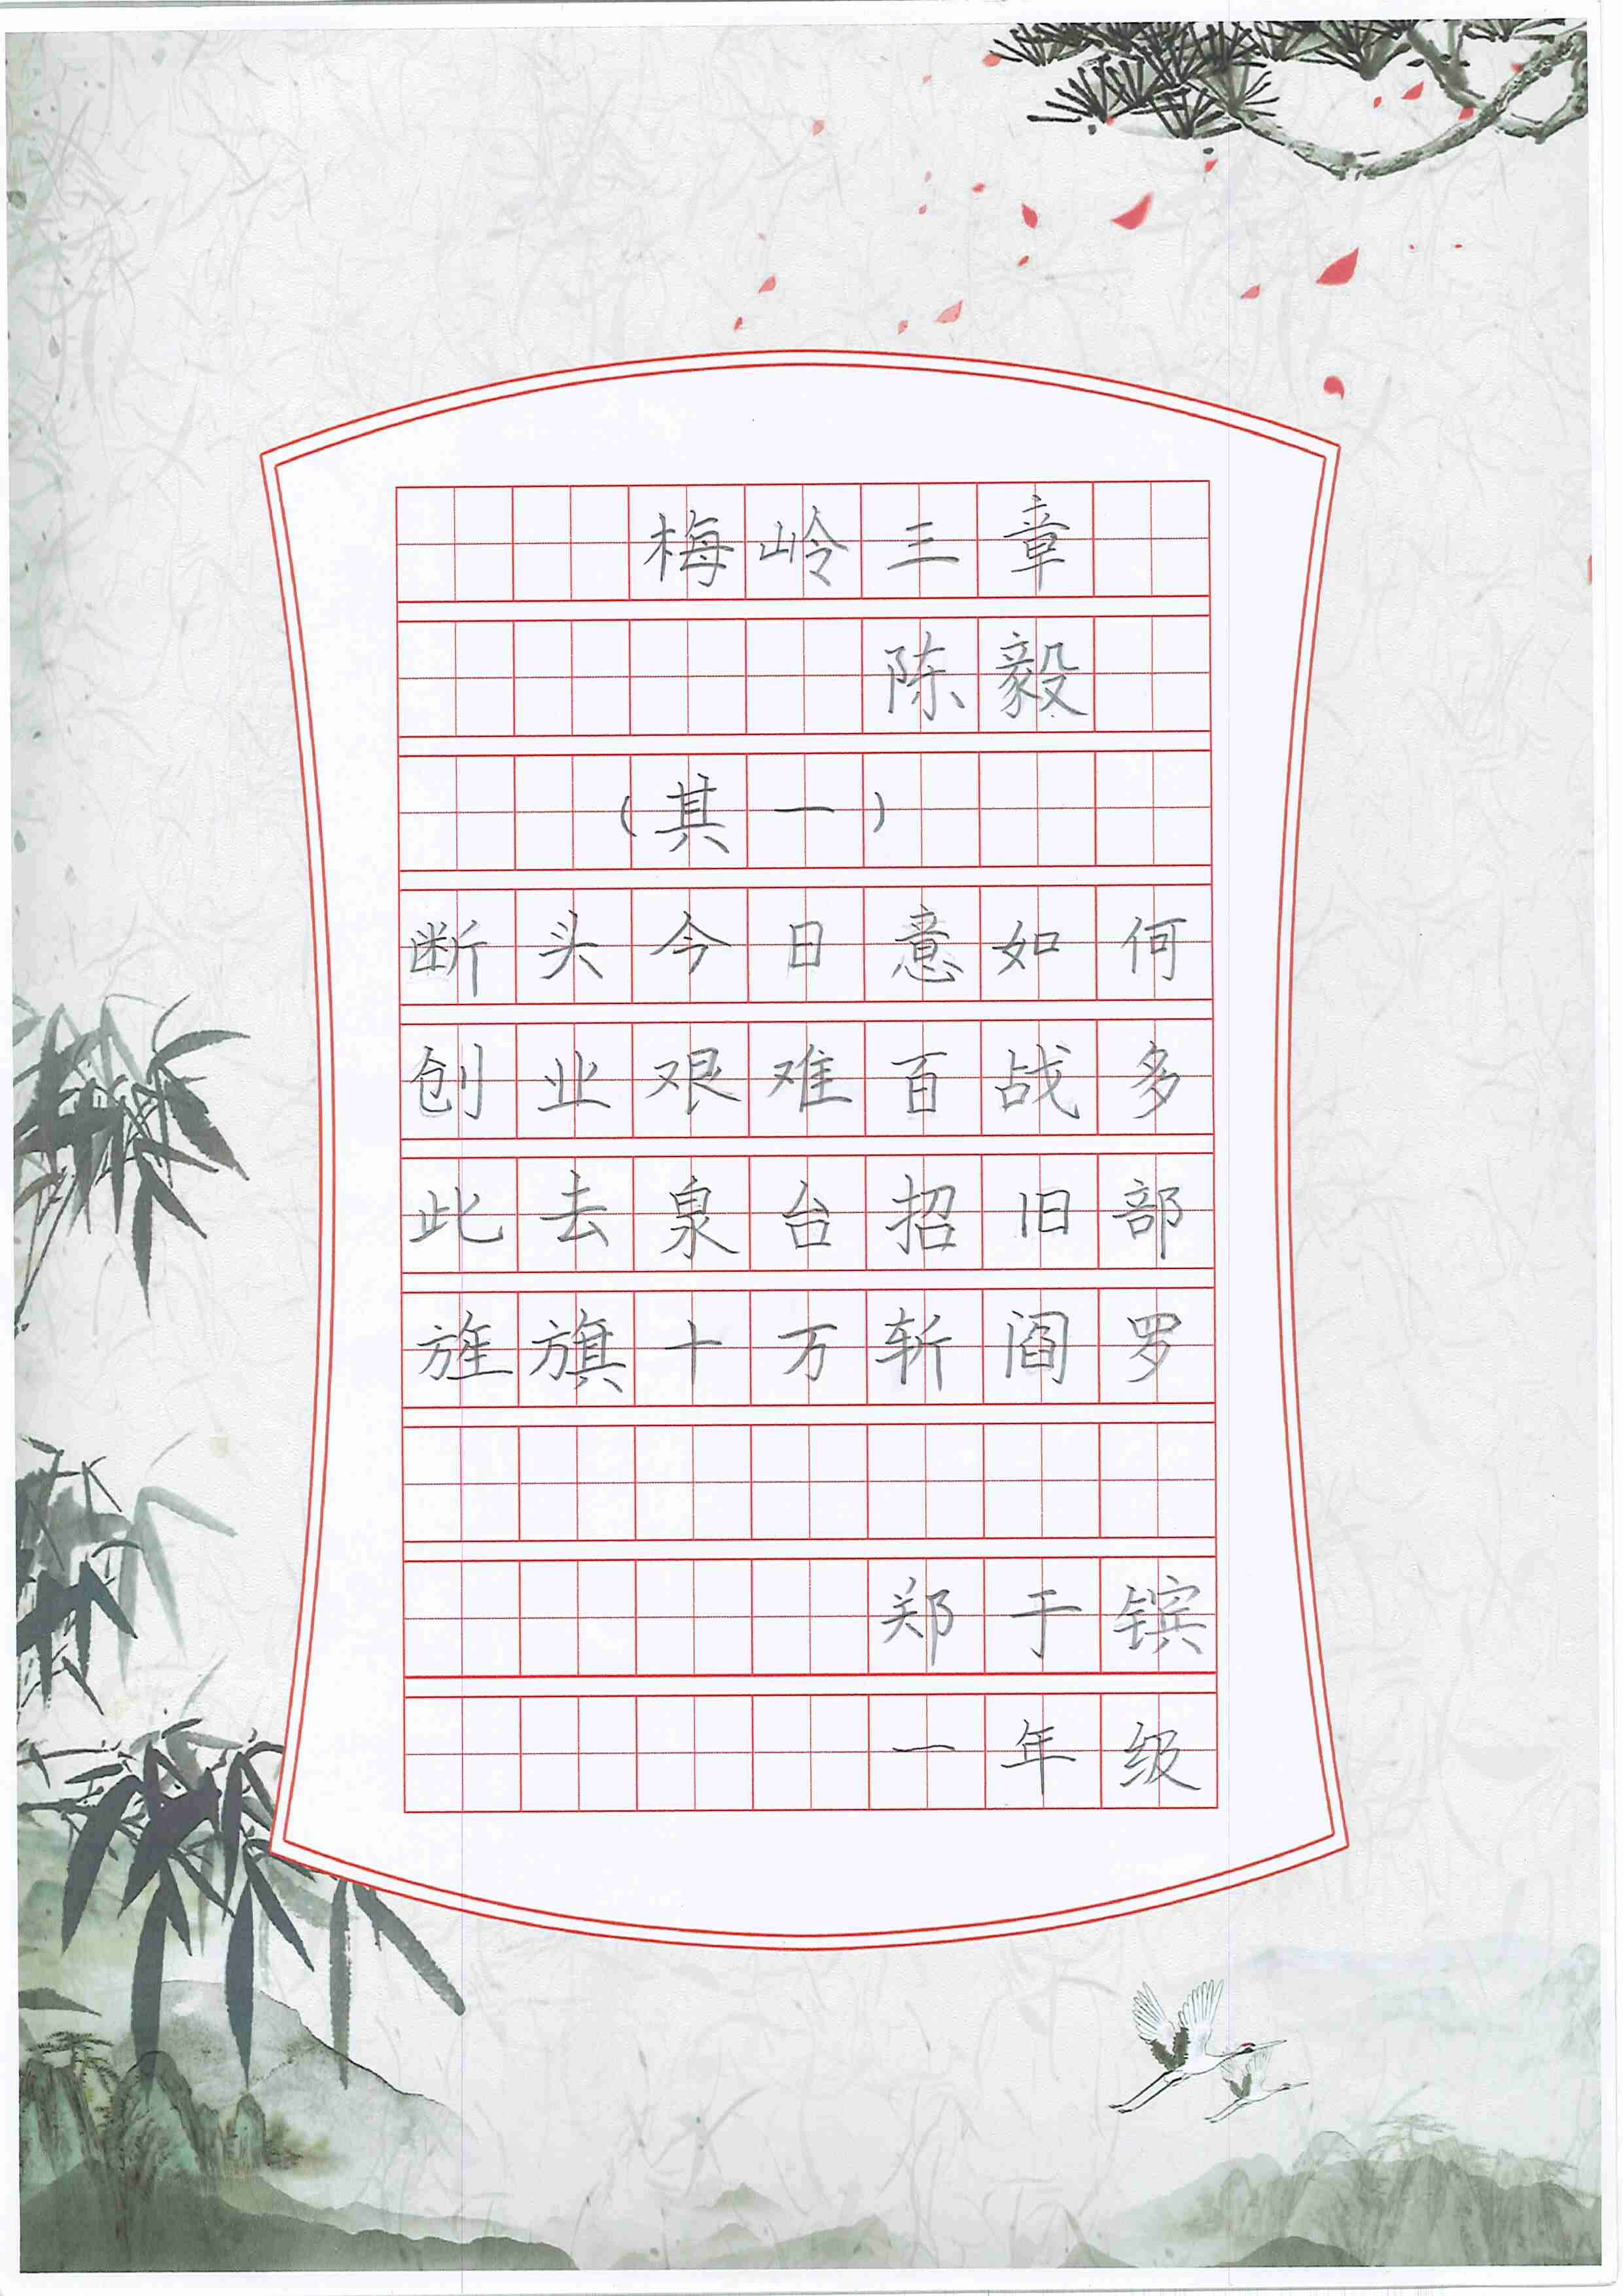 梅岭三章
陈毅
（其一）
断头今日意如何
创业艰难百战多
此去泉台招旧部
旌旗十万斩阎罗
郑于镔
一年级